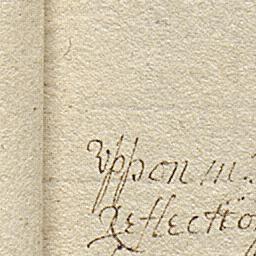 Vppon m:
Reflectio